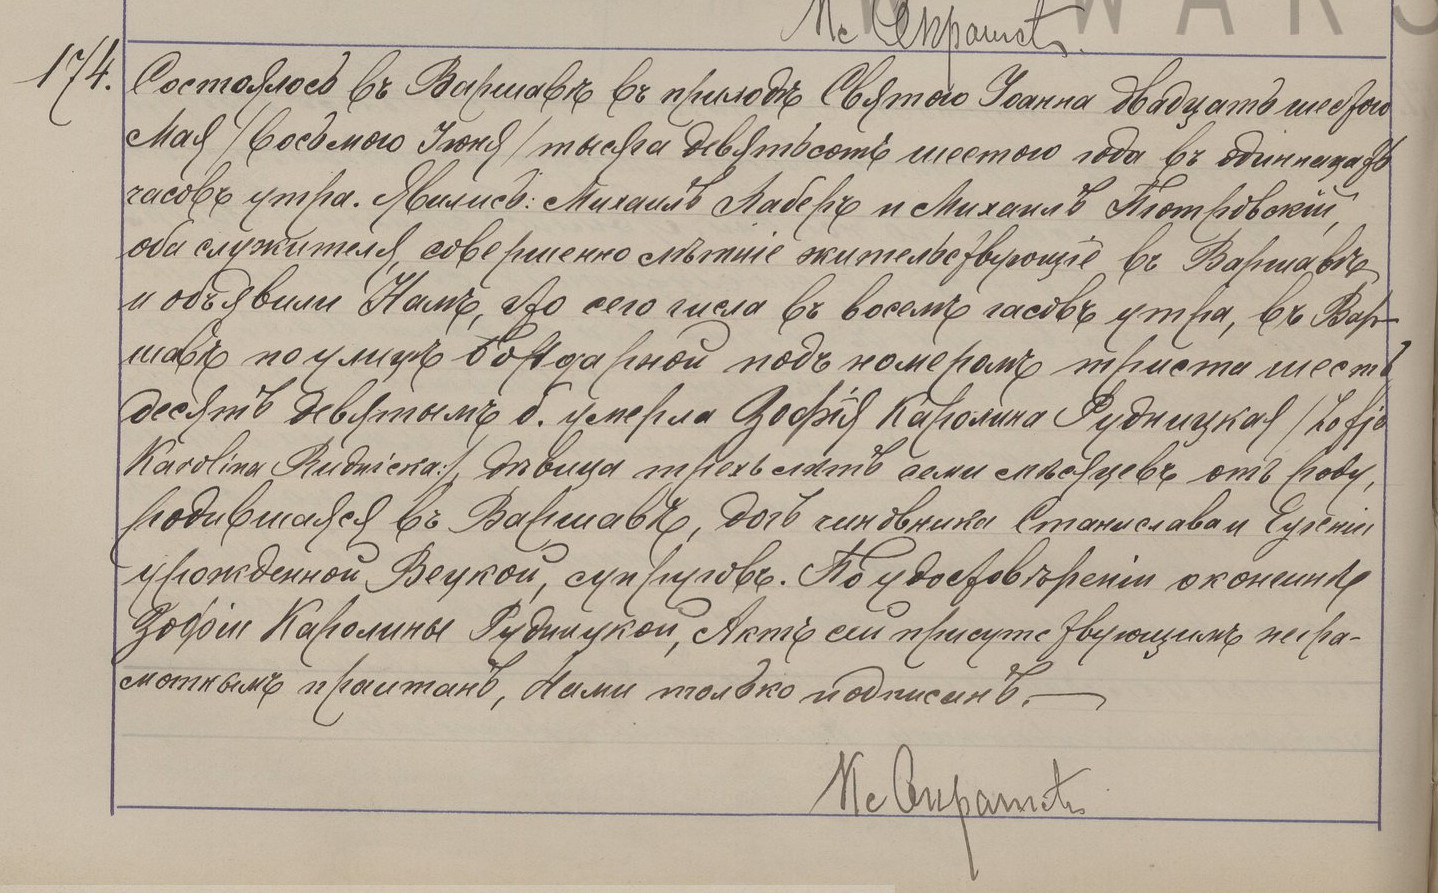 W WARS
174.
Состоялось въ Варшавѣ въ приходѣ Святого Іоанна двадцать шестого
Мая /Восьмого Іюня/ тысяча девятьсотъ шестого года въ одиннадцать
часовъ утра. Явились: Михаилъ Лаберъ и Михаилъ Піотровскій,
оба служителя, совершеннолѣтніе жительствующіе въ Варшавѣ
и объявили Намъ, что сего числа въ восемь часовъ утра, въ Вар-
шавѣ по улицѣ Бондарной подъ номеромъ триста шестъ
десятъ девятымъ б. умерла Зофія Каролина Рудницкая /Zofja
Karolina Rudnicka:/, дѣвица трехъ лѣтъ семи мѣсяцевъ отъ роду,
родившаяся въ Варшавѣ, дочь чиновника Станислава и Евгеніи
урожденной Вецкой, супруговъ. По удостовѣреніи о кончинѣ
Зофіи Каролины Рудницкой, Актъ сей присутствующимъ негра-
мотнымъ прочитанъ, Нами только подписанъ.